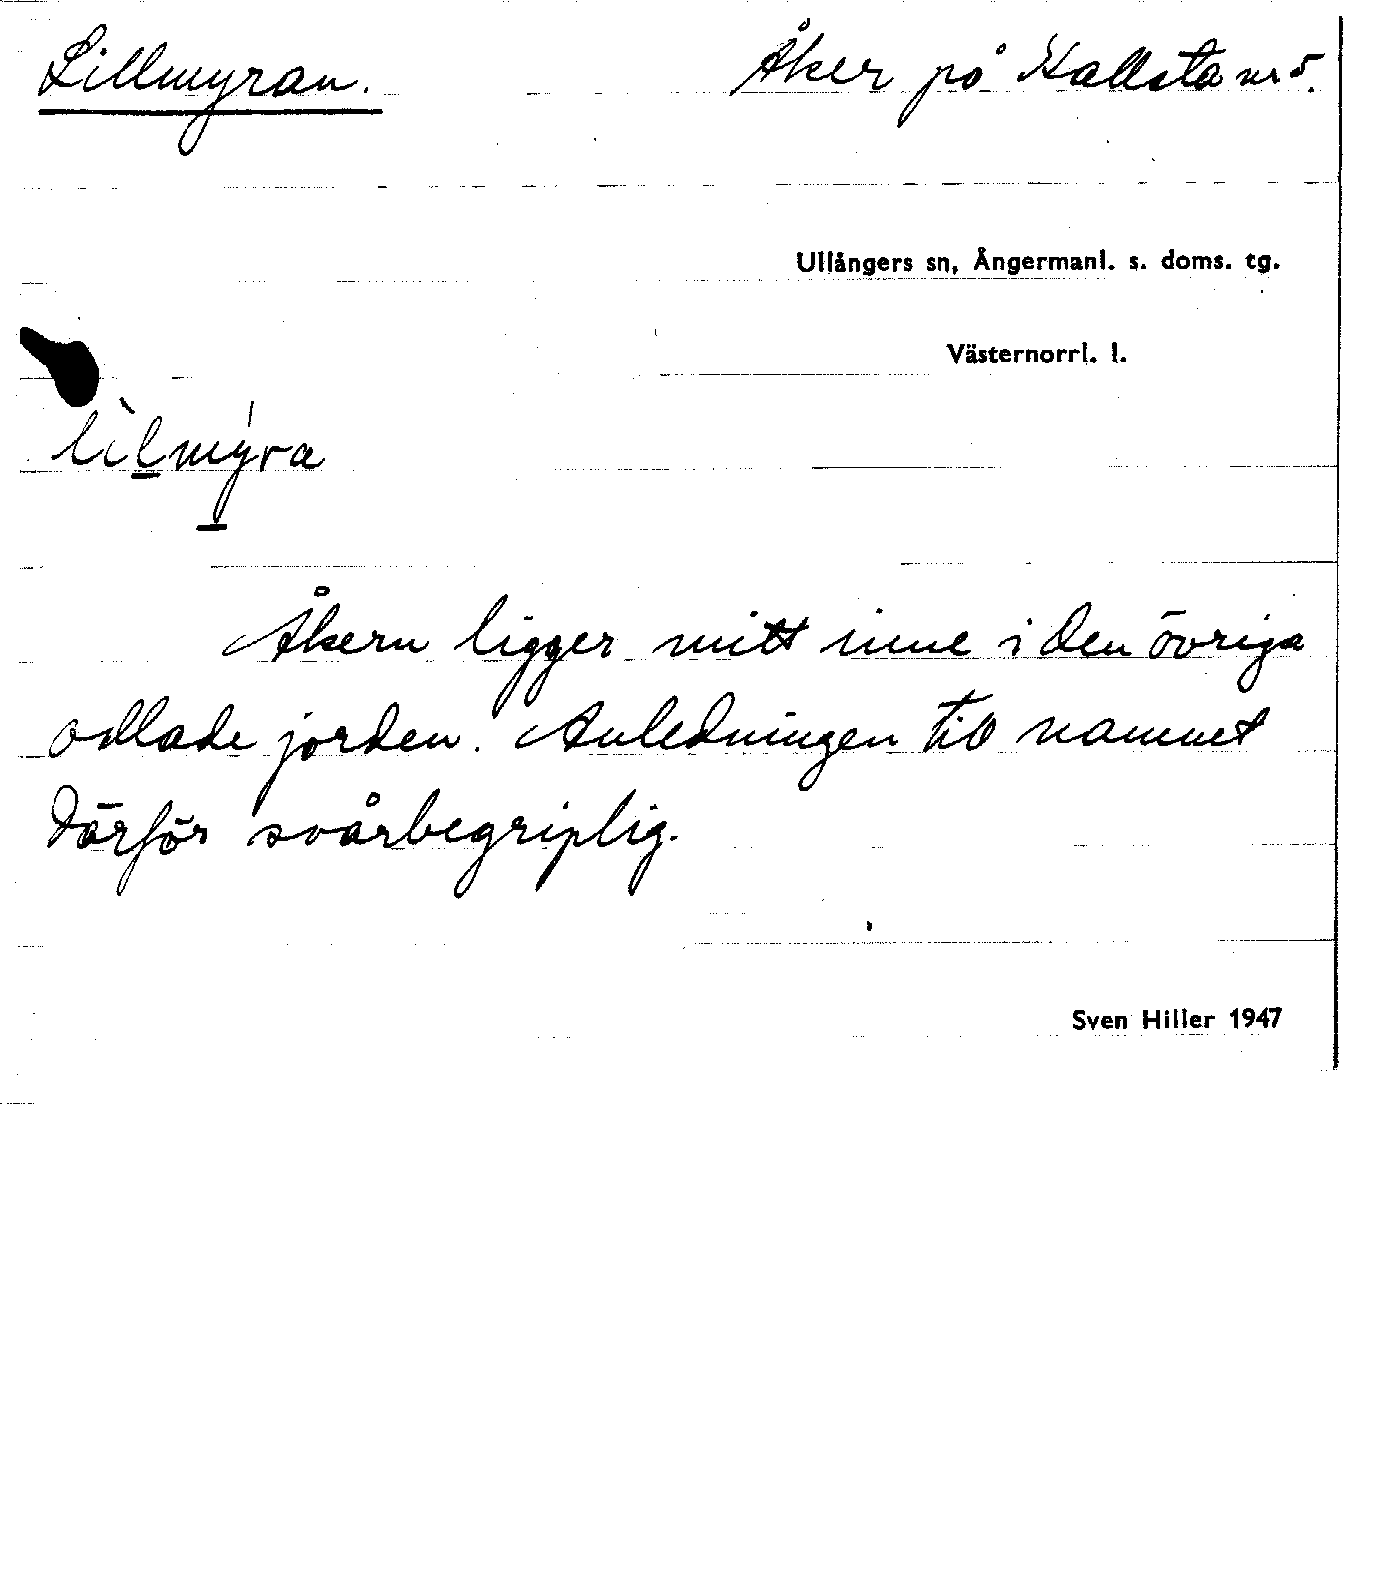 Lillmyran. Åker på Kallsta nr 5.
Ullångers sn, Ångermanl. s. doms. tg.
Västernorrl. l.
lìlmýra
Åkern ligger mitt inne i den övriga
odlade jorden. Anledningen till namnet
därför svårbegriplig.
Sven Hiller 1947